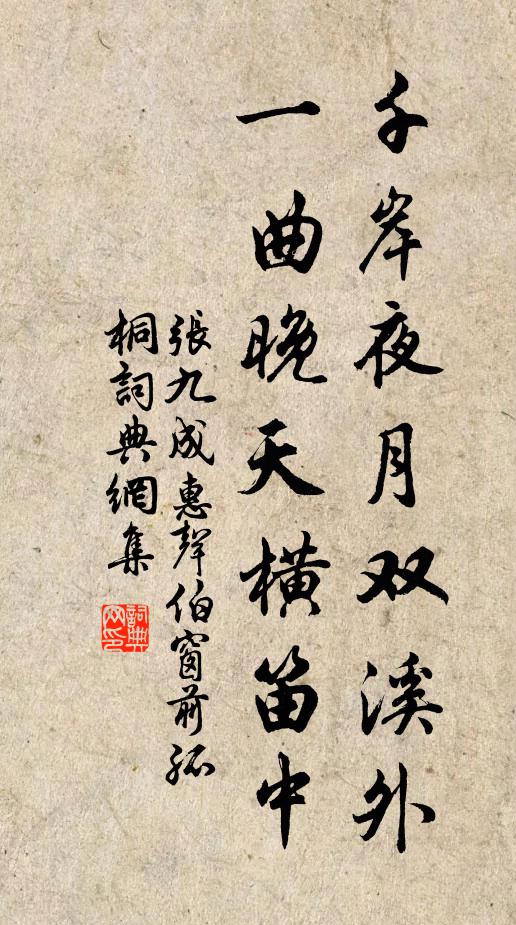 千岸夜月双溪外
一曲晚天橫笛中
張九成惠聲伯窗前孤
桐詞典網集
詞典网印